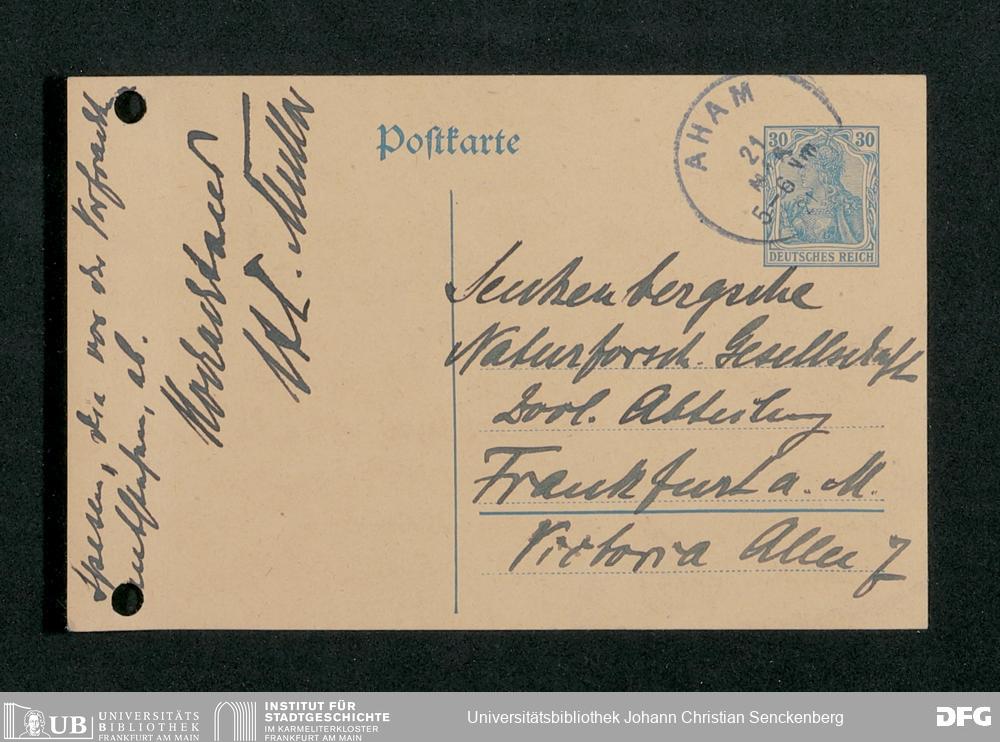 Postkarte
AHAM
21
5-6 Vm
30 30
DEUTSCHES REICH
Senkenbergsche
Naturforsch. Gesellschaft
Zool. Abteilung
Frankfurt a. M.
Victoria Allee 7
Spesen, die vor der
ab.
Hochachtend
Müller
UB UNIVERSITÄTS
BIBLIOTHEK
FRANKFURT AM MAIN
INSTITUT FÜR
STADTGESCHICHTE
IM KARMELITERKLOSTER
FRANKFURT AM MAIN
Universitätsbibliothek Johann Christian Senckenberg
DFG